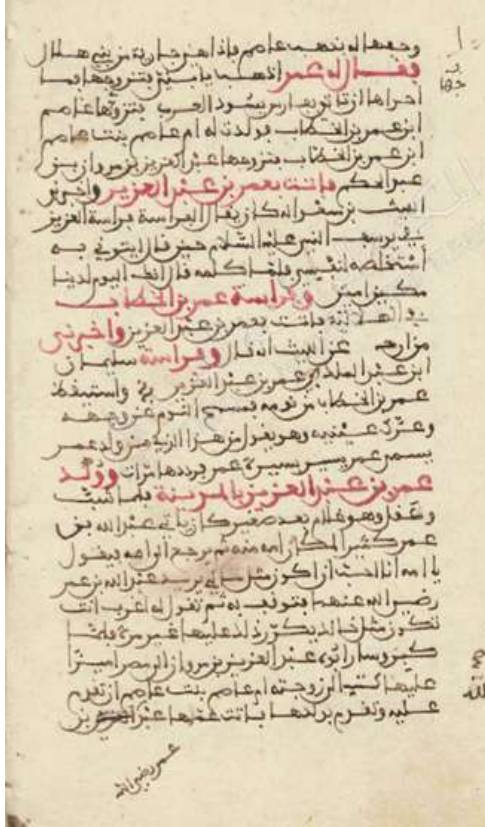 وصفها له فذهب عاصم فاذا هي جارية من بني هلال
فقال له عمر اذهب يا بني فتزوجها فما
احراها ان تاتي بفارس يسود العرب فتزوجها عاصم
ابن عمر بن الخطاب فولدت له ام عاصم بنت عاصم
ابن عمر بن الخطاب فتزوجها عبد العزيز بن مروان بن
عبد الحكم فاتت بعمر بن عبد العزيز واخبرني
الليث بن سعد انه كان يقال الفراسة فراسة العزيز
في يوسف النبي عليه السلام حين قال ايتوني به
أستخلصه لنفسي فلما كلمه قال انك اليوم لدينا
مكين امين وفراسة عمر بن الخطاب
في الهلالية فاتت بعمر بن عبد العزيز واخبرني
عن الليث انه قال وفراسة سليمان
ابن عبد الملك في عمر بن عبد العزيز واستيقظ
عمر بن الخطاب من نومه فمسح النوم عن وجهه
وعرك عينيه وهو يقول من هذا الذي من ولد عمر
يسمى عمر يسير بسيرة عمر يرددها مرات وولد
عمر بن عبد العزيز بالمدينة فلما شب
وعقل وهو غلام بعد صغير كان ياتي عبد الله بن
عمر كثيرا لمكان امه منه ثم يرجع الى امه فيقول
يا امه انا احب ان اكون مثل خالي يريد عبد الله بن عمر
رضي الله عنهما فتونب به ثم تقول له اعزب انت
تكون مثل خالك تكرر ذلك عليه غير مرة فلما
كبر وسار ابوه عبد العزيز بن مروان الى مصر اميرا
عليها كتب الى زوجته ام عاصم بنت عاصم ان تقدم
عليه وتقدم بولدها فاتت عمها عبد الله بن
عمر رضي الله